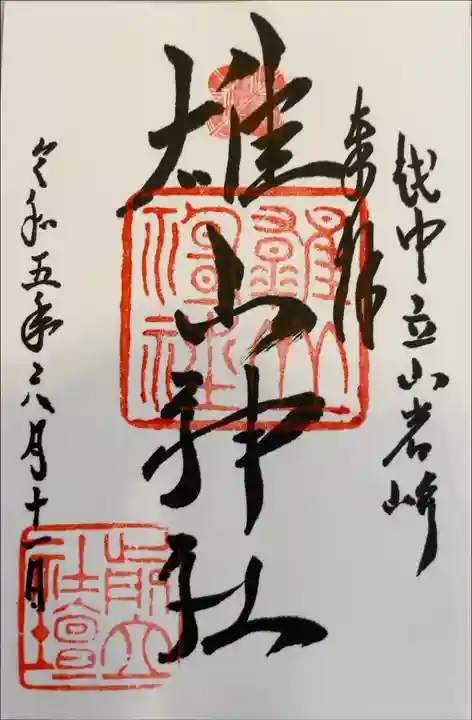 越中立山岩峅
奉拝
雄山神社
令和五年六月十一日
前立
社壇